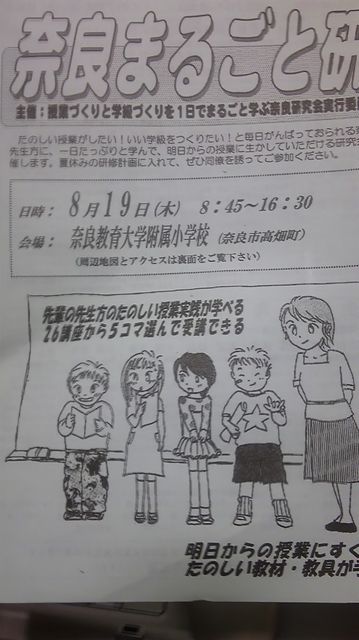 奈良まるごと研
主催：授業づくりと学級づくりを１日でまるごと学ぶ奈良研究会実行委
たのしい授業がしたい！いい学級をつくりたい！と毎日がんばっておられる
先生方に、一日たっぷりと学んで、明日からの授業に生かしていただける研究
催します。夏休みの研修計画に入れて、ぜひ同僚を誘ってご参加ください。
日時： 8月19日(木) 8：45～16：30
会場： 奈良教育大学附属小学校 (奈良市高畑町)
(周辺地図とアクセスは裏面をご覧下さい)
先輩の先生方のたのしい授業実践が学べる
26講座から5コマ選んで受講できる
明日からの授業にすぐ
たのしい教材・教具が